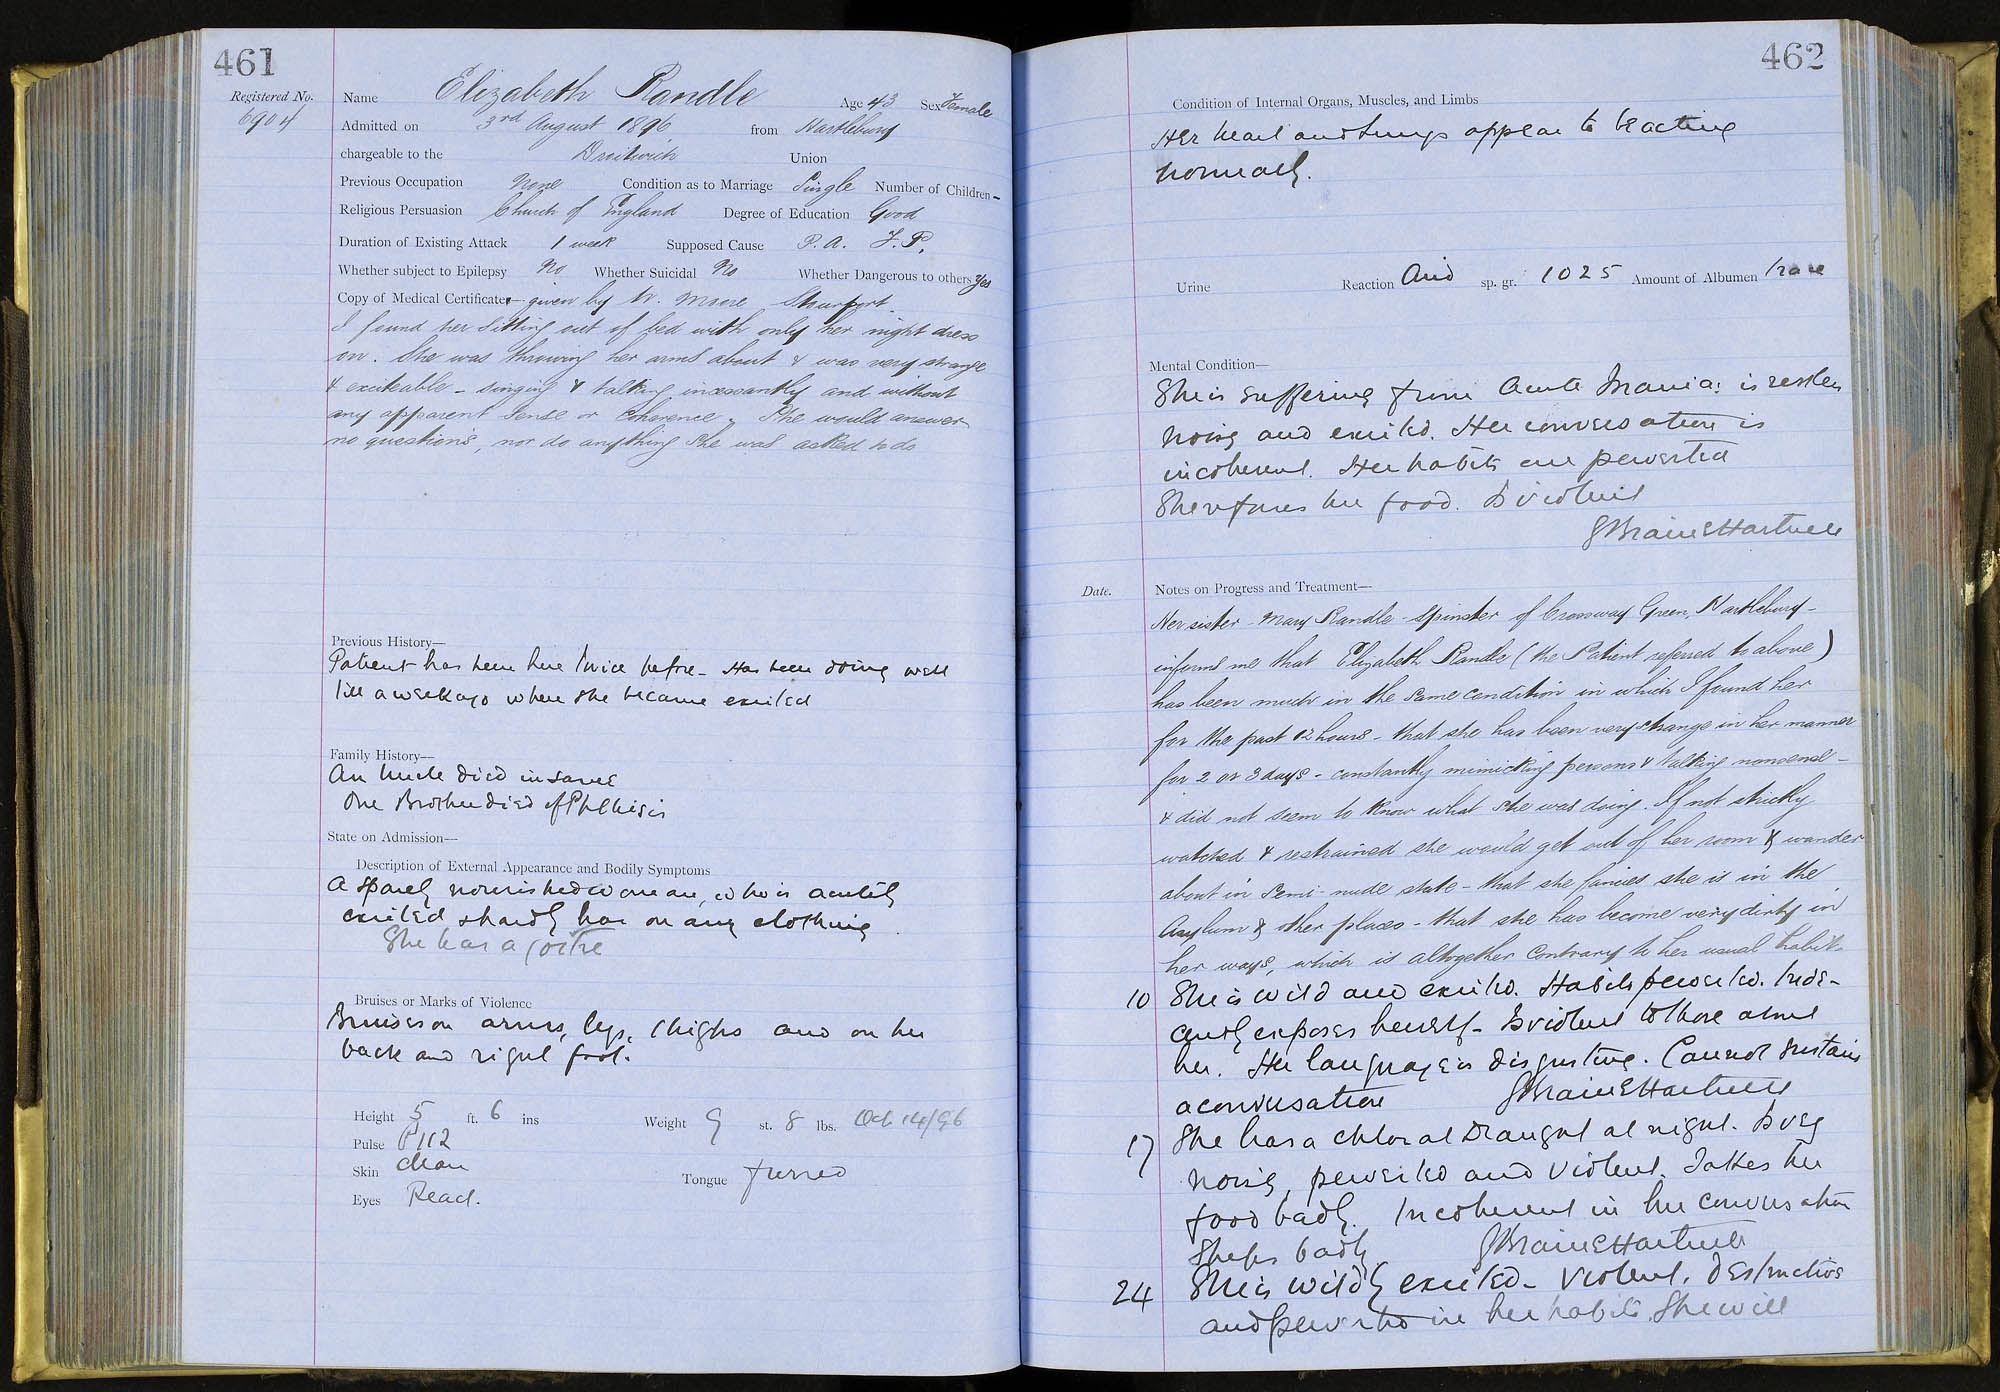 461
Registered No.
6904
Name Elizabeth Randle Age 43 Sex Female
Admitted on 3rd August 1896 from Hartlebury
chargeable to the Droitwich Union
Previous Occupation None Condition as to Marriage Single Number of Children –
Religious Persuasion Church of England Degree of Education Good
Duration of Existing Attack 1 week Supposed Cause P. A.
Whether subject to Epilepsy No Whether Suicidal No Whether Dangerous to others Yes
Copy of Medical Certificate – given by Moore Stourport.
I found her sitting out of bed with only her night dress
on. She was throwing her arms about & was very strange
& exciteable – singing & talking incessantly and without
any apparent sense or coherence. She would answer
no questions, nor do anything she was asked to do
Previous History—
Patient has been here twice before – Has been doing well
till a week ago when she became excited
Family History—
An Uncle died insane
One Brother died of Phthisis
State on Admission—
Description of External Appearance and Bodily Symptoms
A sparely nourished woman, who is acutely
excited & hardly has on any clothing.
She has a goitre
Bruises or Marks of Violence
Bruises on arms, legs, thighs and on her
back and right foot.
Height 5 ft. 6 ins Weight 9 st. 8 lbs. Oct 14/96
Pulse 112
Skin Clean Tongue furred
Eyes React.
462
Condition of Internal Organs, Muscles, and Limbs
Her heart and lungs appear to be acting
normally.
Urine Reaction Acid sp. gr. 1025 Amount of Albumen trace
Mental Condition—
She is suffering from Acute Mania: is restless
noisy and excited. Her conversation is
incoherent. Her habits are perverted
She refuses her food. Is violent
Braine Hartnell
Date. Notes on Progress and Treatment—
Her sister – Mary Randle – spinster of Crossway Green, Hartlebury –
informs me that Elizabeth Randle (the Patient referred to above)
has been much in the same condition in which I found her
for the past 12 hours – that she has been very strange in her manner
for 2 or 3 days – constantly mimicking persons & talking nonsense –
& did not seem to know what she was doing. If not strictly
watched & restrained she would get out of her room & wander
about in semi-nude state – that she fancies she is in the
Asylum & other places – that she has become very dirty in
her ways, which is altogether contrary to her usual habit.
10 She is wild and excited. Habits perverted. Inde-
cently exposes herself – Is violent to those about
her. Her language is disgusting. Cannot sustain
a conversation Braine Hartnell
17 She has a chloral Draught at night. Is very
noisy, perverted and violent. Takes her
food badly. Incoherent in her conversation
Sleeps badly Braine Hartnell
24 She is wildly excited – violent, destructive
and perverted in her habits. She will